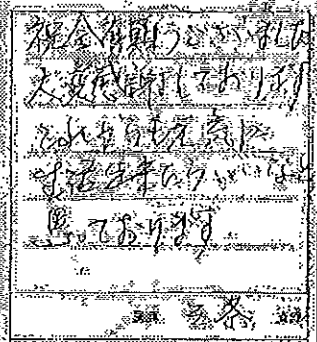 祝金有難うございました
大変感謝しております
これからも元気に
生活出来たらいいな
思っております